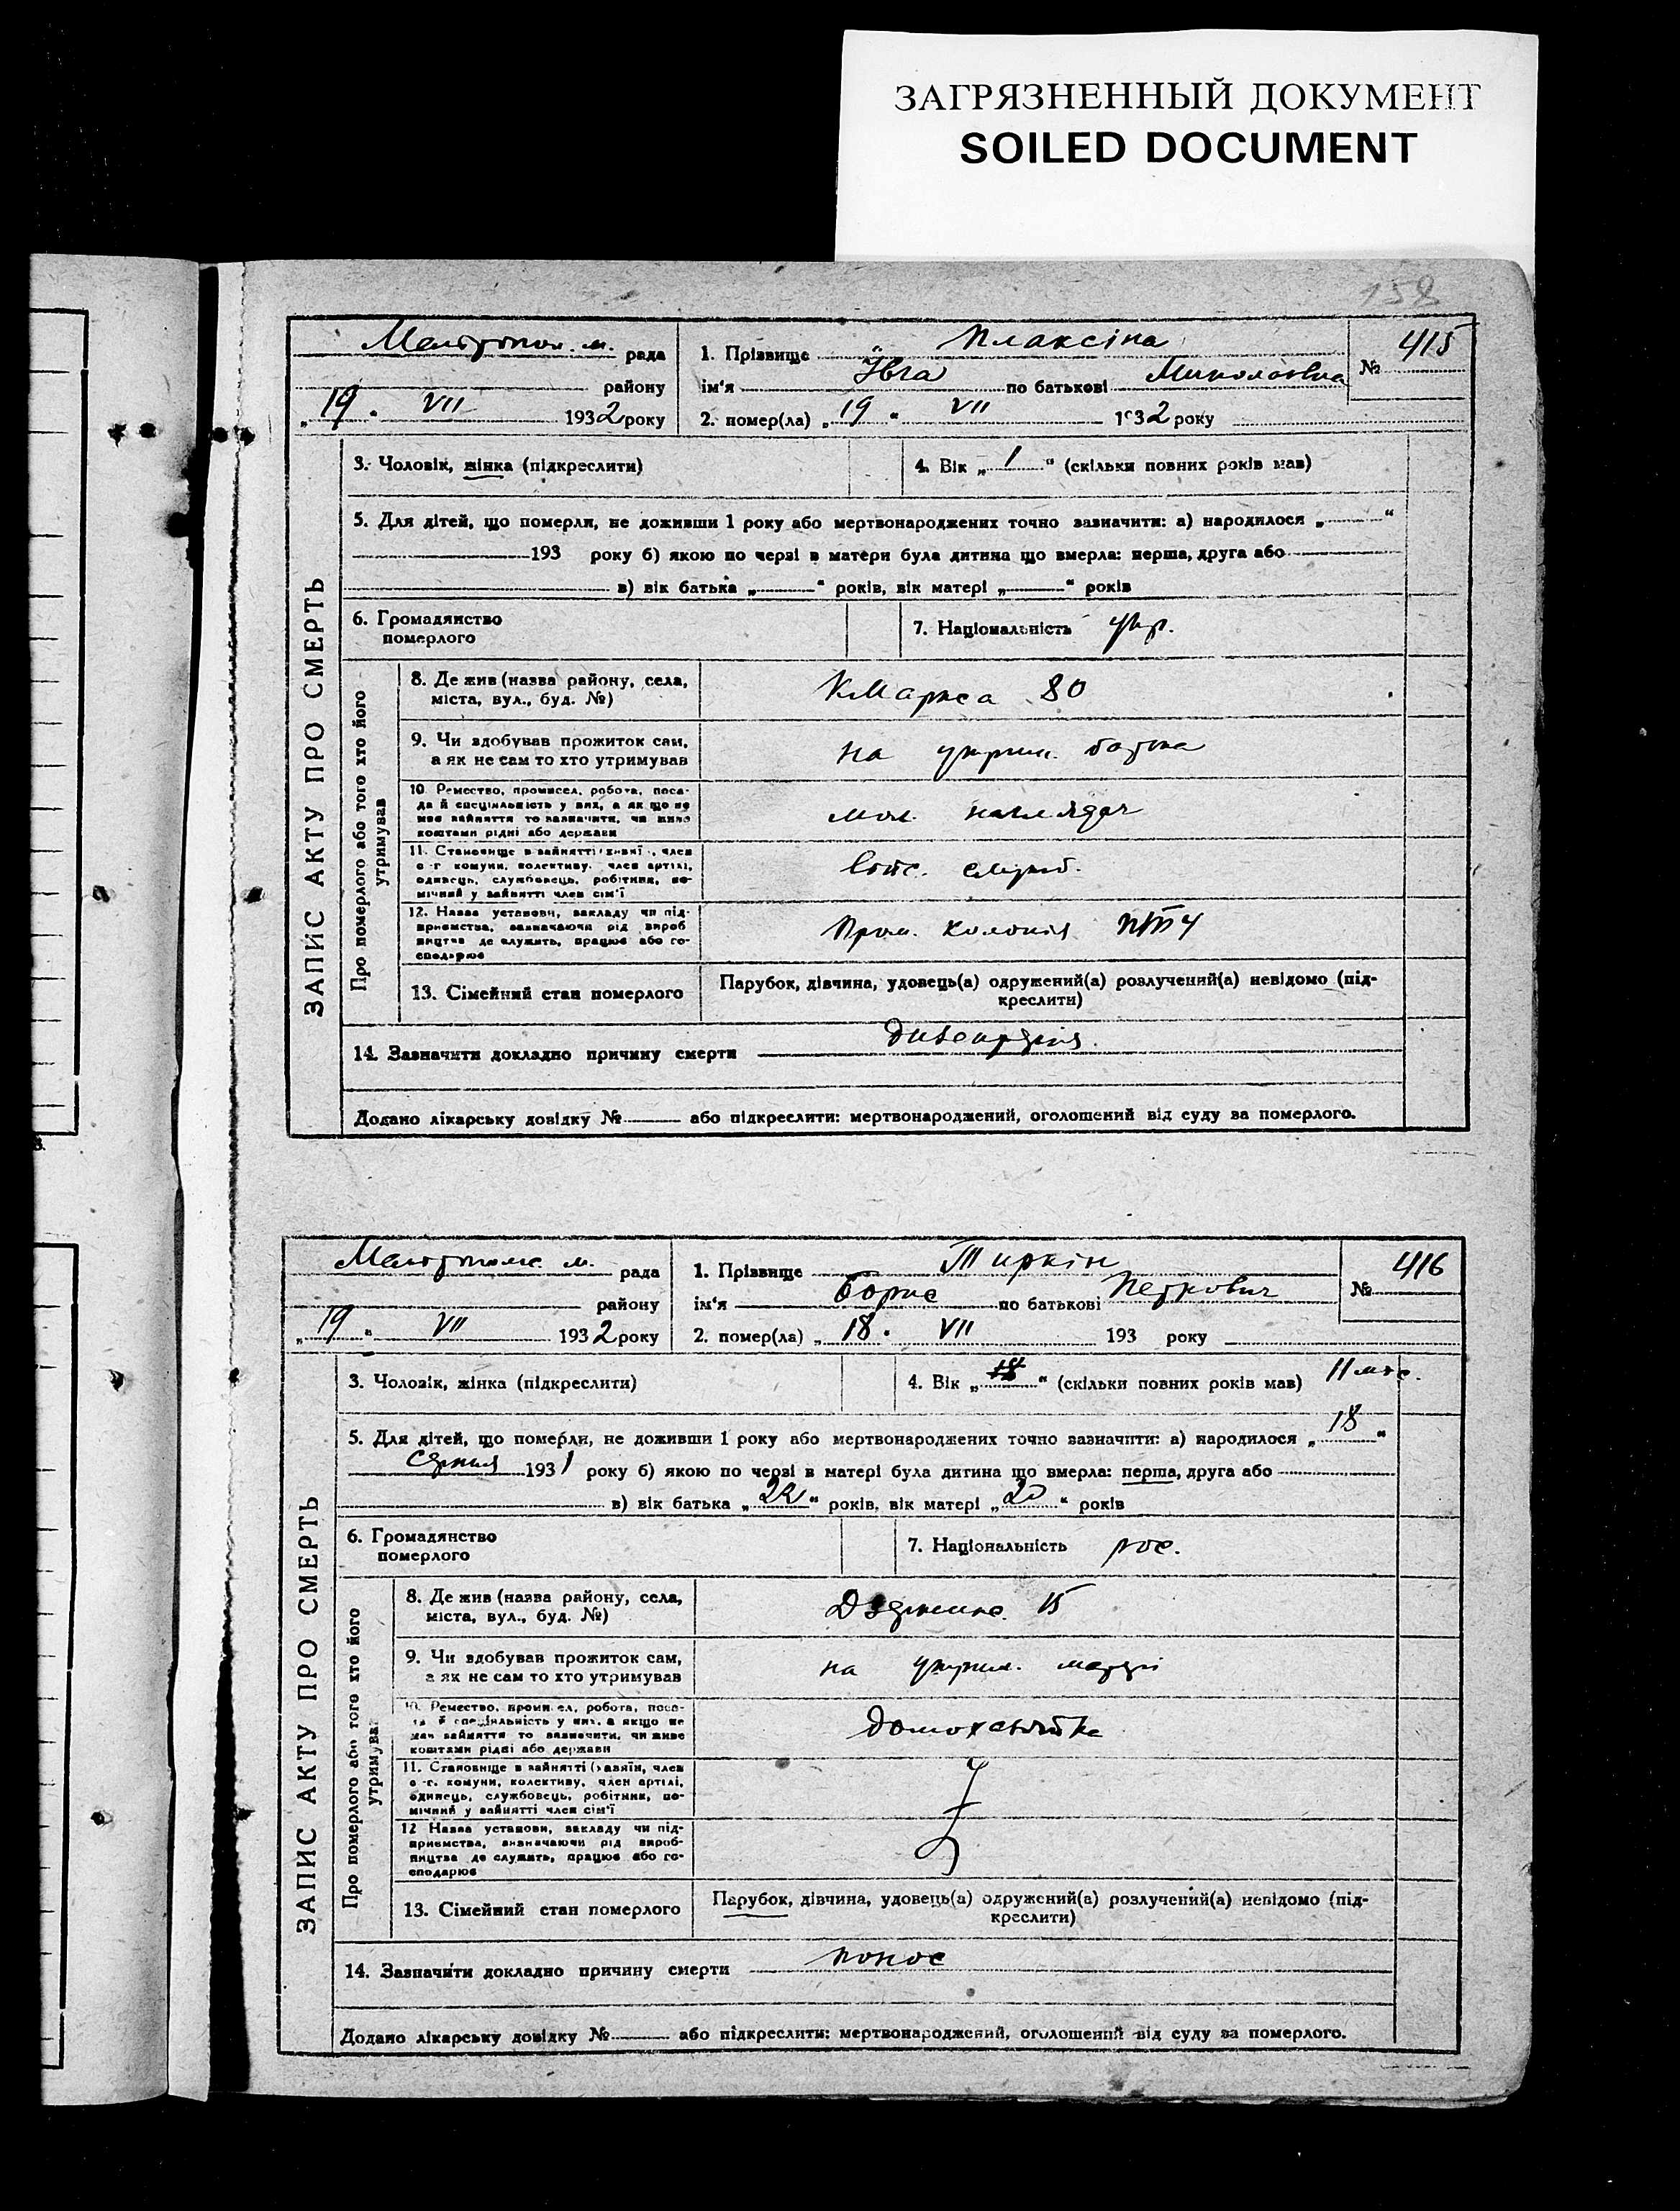 ЗАГРЯЗНЕННЫЙ ДОКУМЕНТ
SOILED DOCUMENT
158
415
рада
1. Прізвище Плаксіна
№
району
ім'я Ївга по батькові Миколаєвна
„19" VII 1932 року
2. помер(ла) „19" VII 1932 року
ЗАПИС АКТУ ПРО СМЕРТЬ
3. Чоловік, жінка (підкреслити)
4. Вік „1" (скільки повних років мав)
5. Для дітей, що померли, не доживши 1 року або мертвонароджених точно зазначити: а) народилося „ "
193 року б) якою по черзі в матери була дитина що вмерла: перша, друга або
в) вік батька „ " років, вік матері „ " років
6. Громадянство
померлого
7. Національність укр.
Про померлого або того хто його
утримував
8. Де жив (назва району, села,
міста, вул., буд. №)
КМаркса 80
9. Чи здобував прожиток сам,
а як не сам то хто утримував
на утрим. батька
10. Ремество, промисел, робота, поса-
да й спеціяльність у них, а як що не
має зайняття то зазначити, чи живе
коштами рідні або держави
мол. наглядач
11. Становище в зайнятті (хазяї, член
с-г. комуни, колективу, член артілі,
одинець, службовець, робітник, по-
мічний у зайнятті член сім'ї
служб.
12. Назва установи, закладу чи під-
приємства, зазначаючи рід вироб
ництва де служить, працює або го-
сподарює
Пром. колонія
13. Сімейний стан померлого
Парубок, дівчина, удовець(а) одружений(а) розлучений(а) невідомо (під-
креслити)
14. Зазначити докладно причину смерти
Додано лікарську довідку № або підкреслити: мертвонароджений, оголошений від суду за померлого.
416
рада
1. Прізвище Тиркін
№
району
ім'я Борис по батькові Петрович
„19" VII 1932 року
2. помер(ла) „18" VII 193 року
ЗАПИС АКТУ ПРО СМЕРТЬ
3. Чоловік, жінка (підкреслити)
4. Вік „ " (скільки повних років мав) 11 міс.
5. Для дітей, що померли, не доживши 1 року або мертвонароджених точно зазначити: а) народилося „18"
Серпня 1931 року б) якою по черзі в матері була дитина що вмерла: перша, друга або
в) вік батька „22" років, вік матері „20" років
6. Громадянство
померлого
7. Національність рос.
Про померлого або того хто його
утримував
8. Де жив (назва району, села,
міста, вул., буд. №)
Дзержинс. 15
9. Чи здобував прожиток сам,
а як не сам то хто утримував
на утрим. матері
10. Ремество, промисел, робота, поса-
да й спеціяльність у них, а якщо не
має зайняття то зазначити, чи живе
коштами рідні або держави
домохазяйка
11. Становище в зайнятті (хазяїн, член
с-г. комуни, колективу, член артілі,
одинець, службовець, робітник, по-
мічний у зайнятті член сім'ї
12 Назва установи, закладу чи під-
приємства, визначаючи рід вироб-
ництва де служить, працює або го-
сподарює
13. Сімейний стан померлого
Парубок, дівчина, удовець(а) одружений(а) розлучений(а) невідомо (під-
креслити)
14. Зазначити докладно причину смерти понос
Додано лікарську довідку № або підкреслити: мертвонароджений, оголошений від суду за померлого.